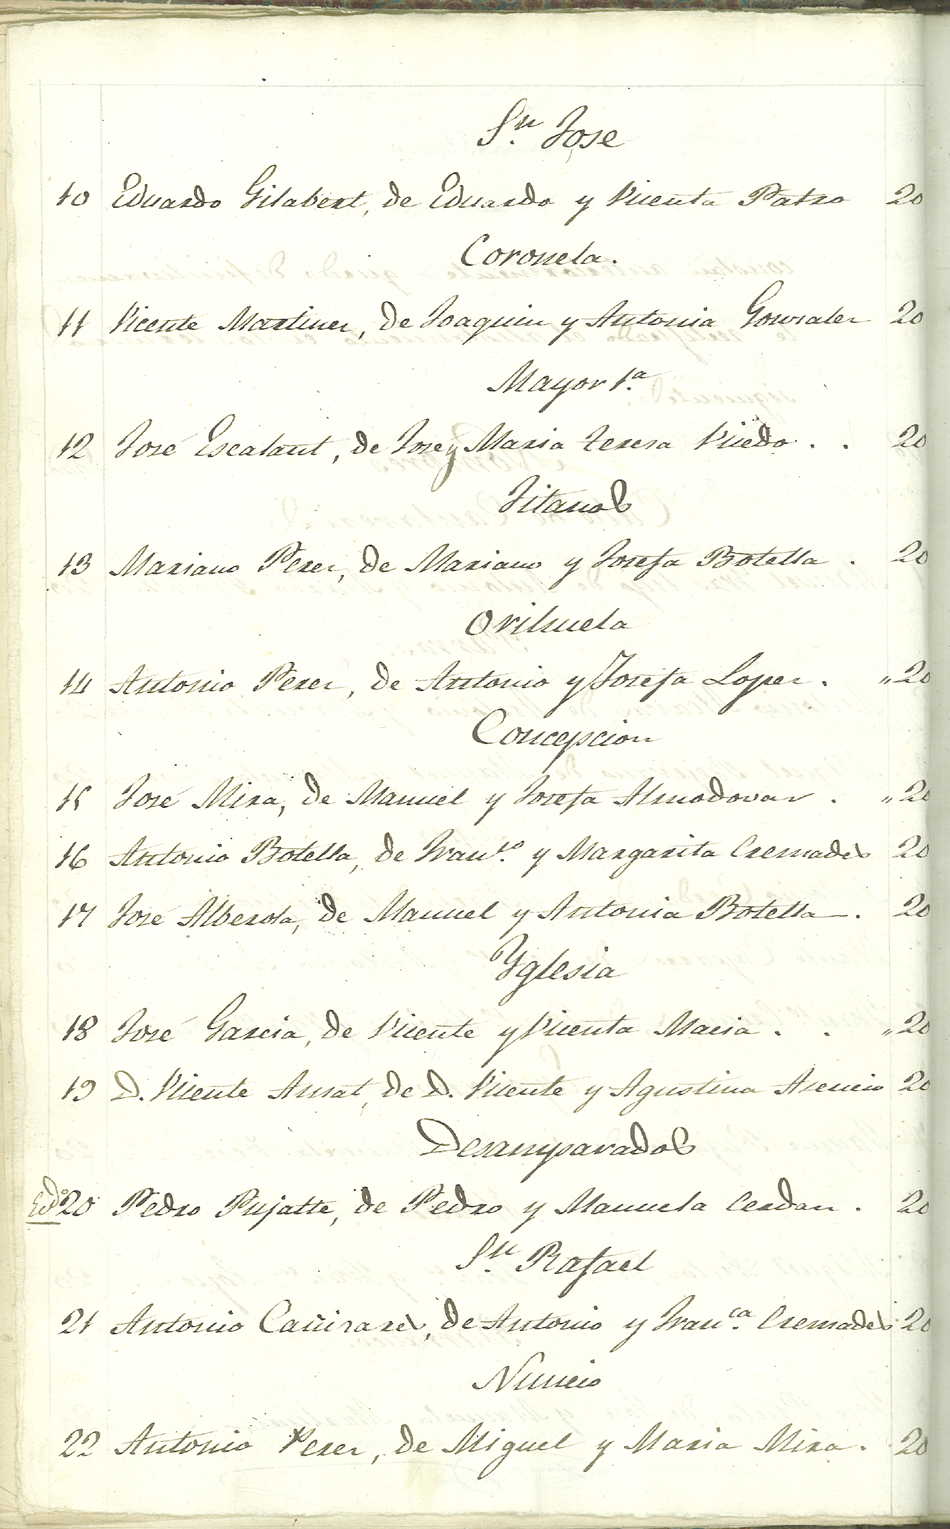 Sn. Jose
10 Eduardo Gilabert, de Eduardo y Vicenta Patro 20
Coronela.
11 Vicente Martinez, de Joaquin y Antonia Gonzalez 20
Mayor 1a.
12 José Escalant, de Jose y Maria Teresa Pueдо . . 20
Gitanos
13 Mariano Perez, de Mariano y Josefa Botella . 20
Orihuela
14 Antonio Perez, de Antonio y Josefa Lopez . „20
Concepcion
15 José Mira, de Manuel y Josefa Almodovar . „20
16 Antonio Botella, de Franco. y Margarita Cremades 20
17 José Alberola, de Manuel y Antonia Botella . 20
Yglesia
18 José Garcia, de Vicente y Vicenta Macia . . „20
19 D. Vicente Amat, de D. Vicente y Agustina Asencio 20
Desamparados
20 Pedro Pujalte, de Pedro y Manuela Cerdan . 20
Sn. Rafael
21 Antonio Cañizares, de Antonio y Franca. Cremades 20
Nuncio
22 Antonio Perez, de Miguel y Maria Mira . 20